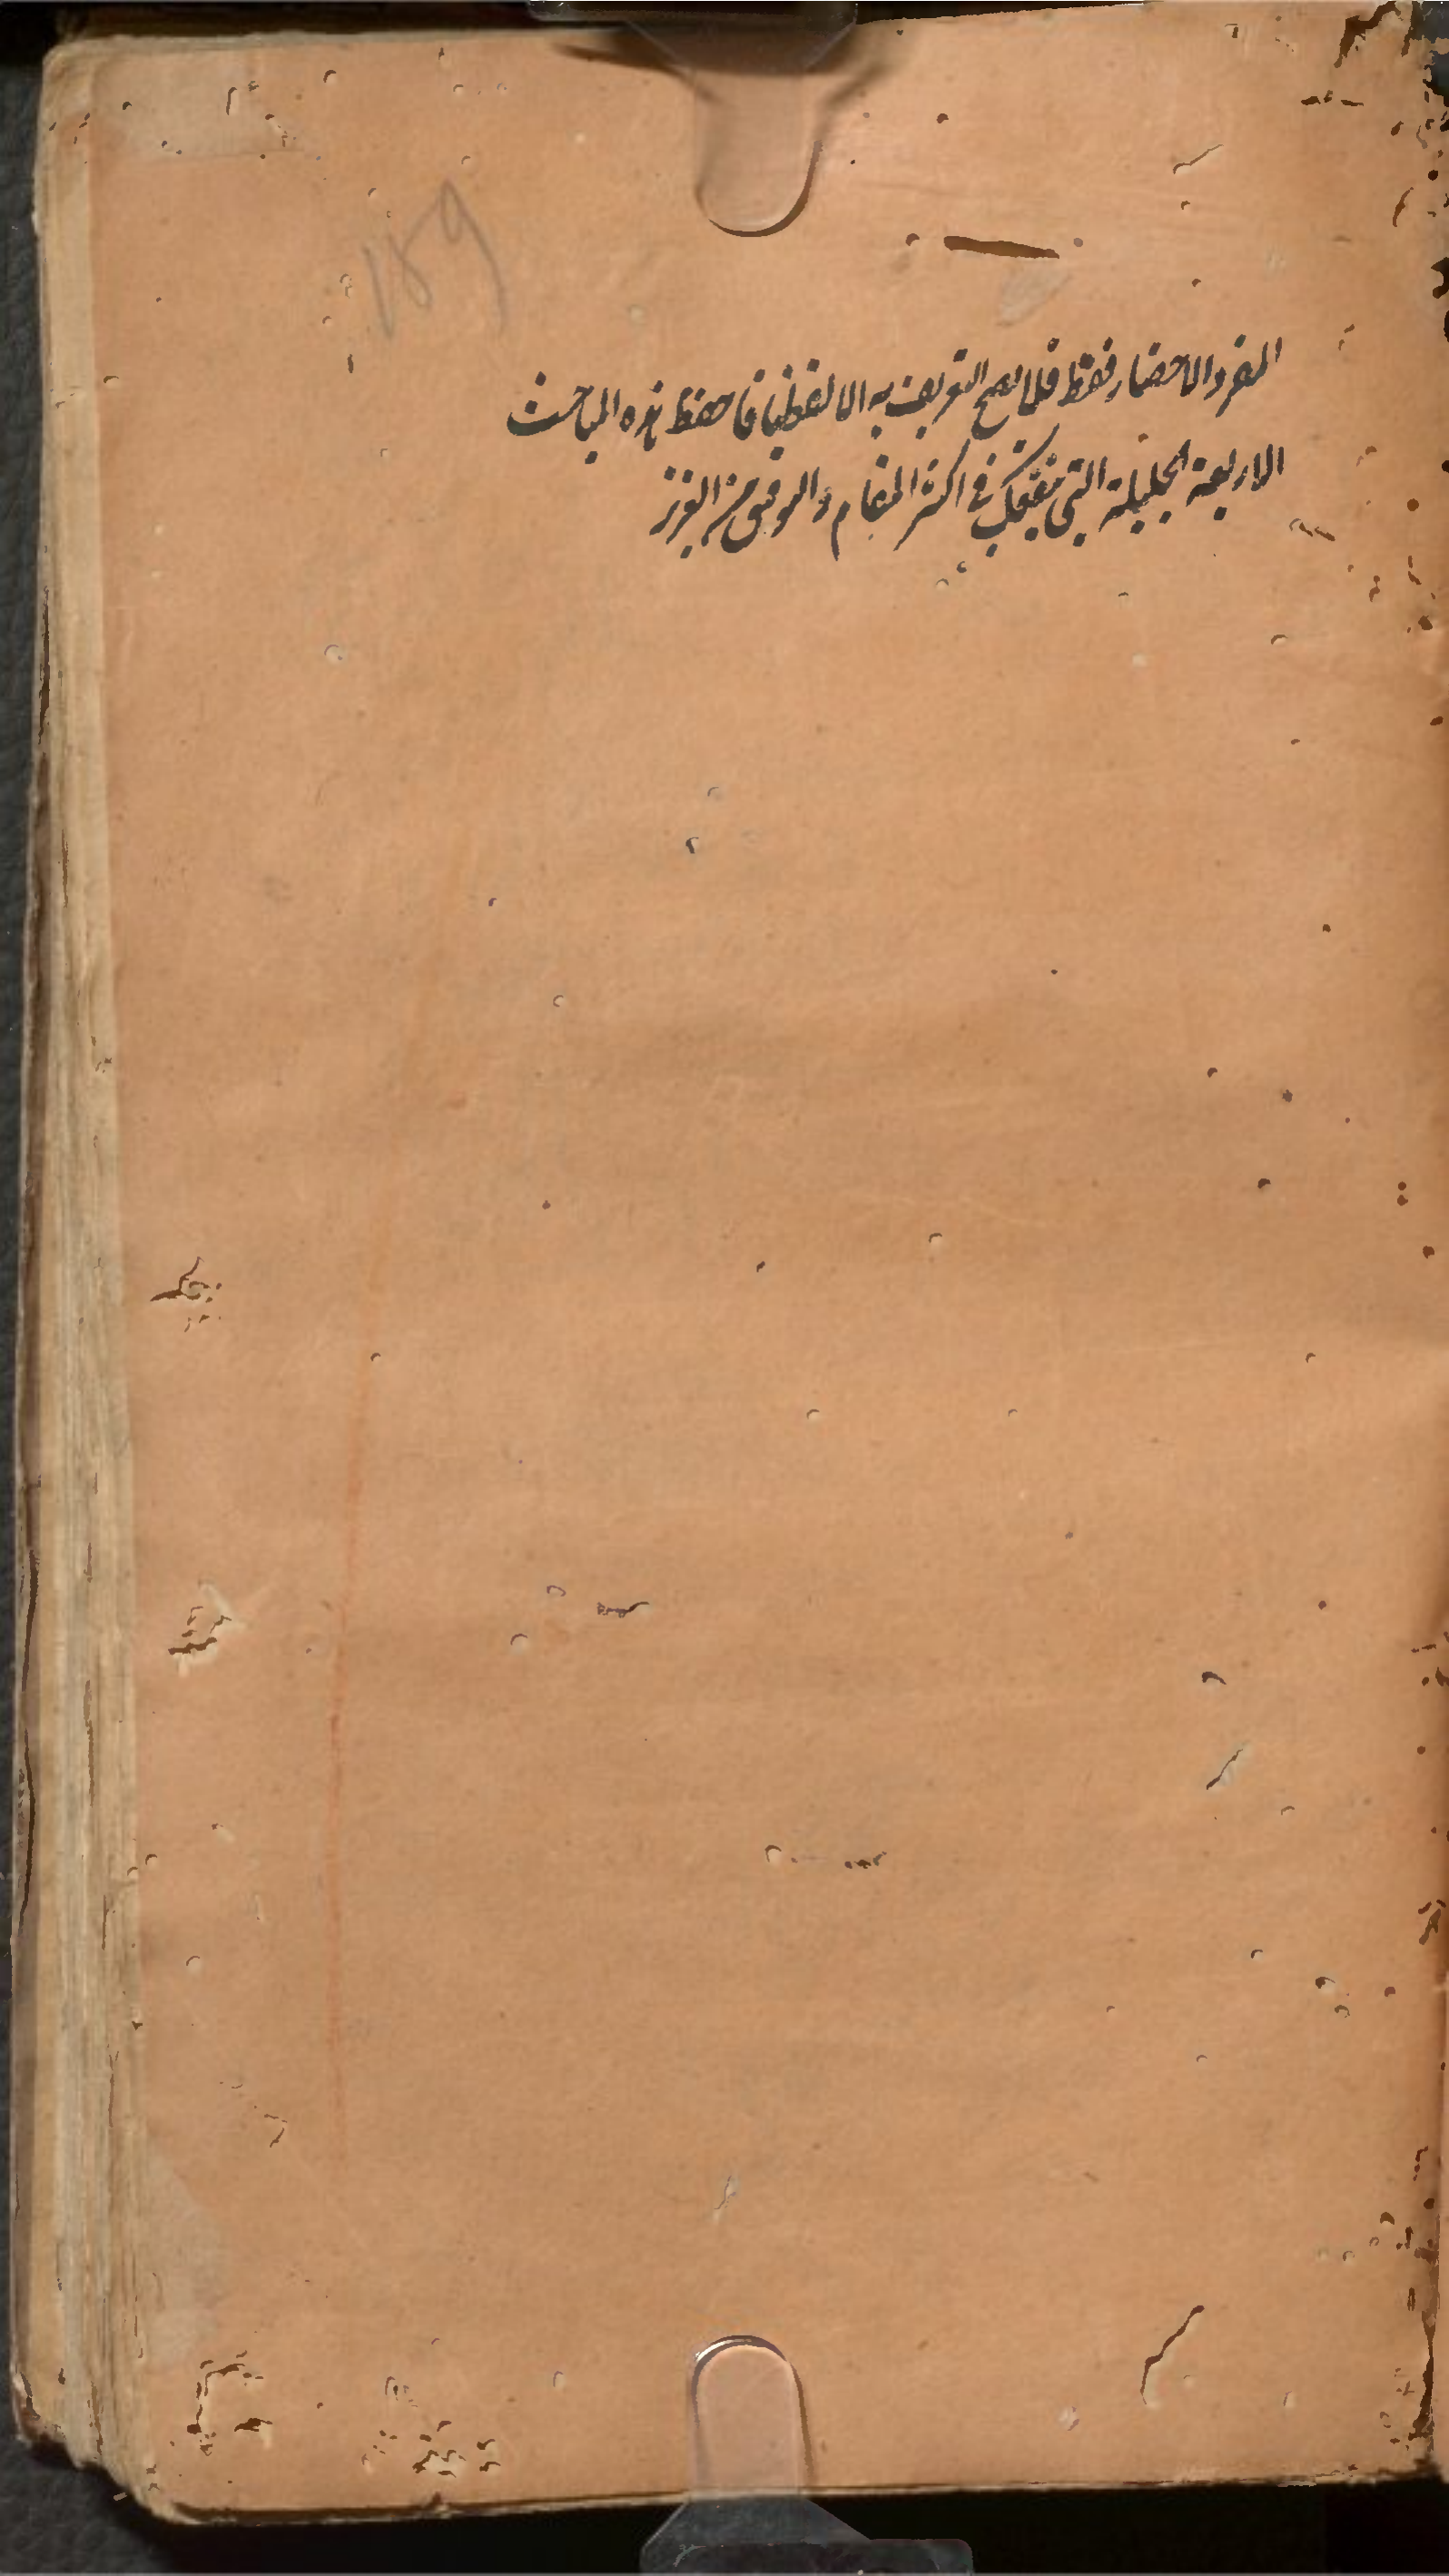 189
المفرد الاحضار فقط فلا يصح التعريف به الا لفظيا فاحفظ هذه المباحث
الاربعة الجليلة التي تنفعك في اكثر المقام والتوفيق من العزيز